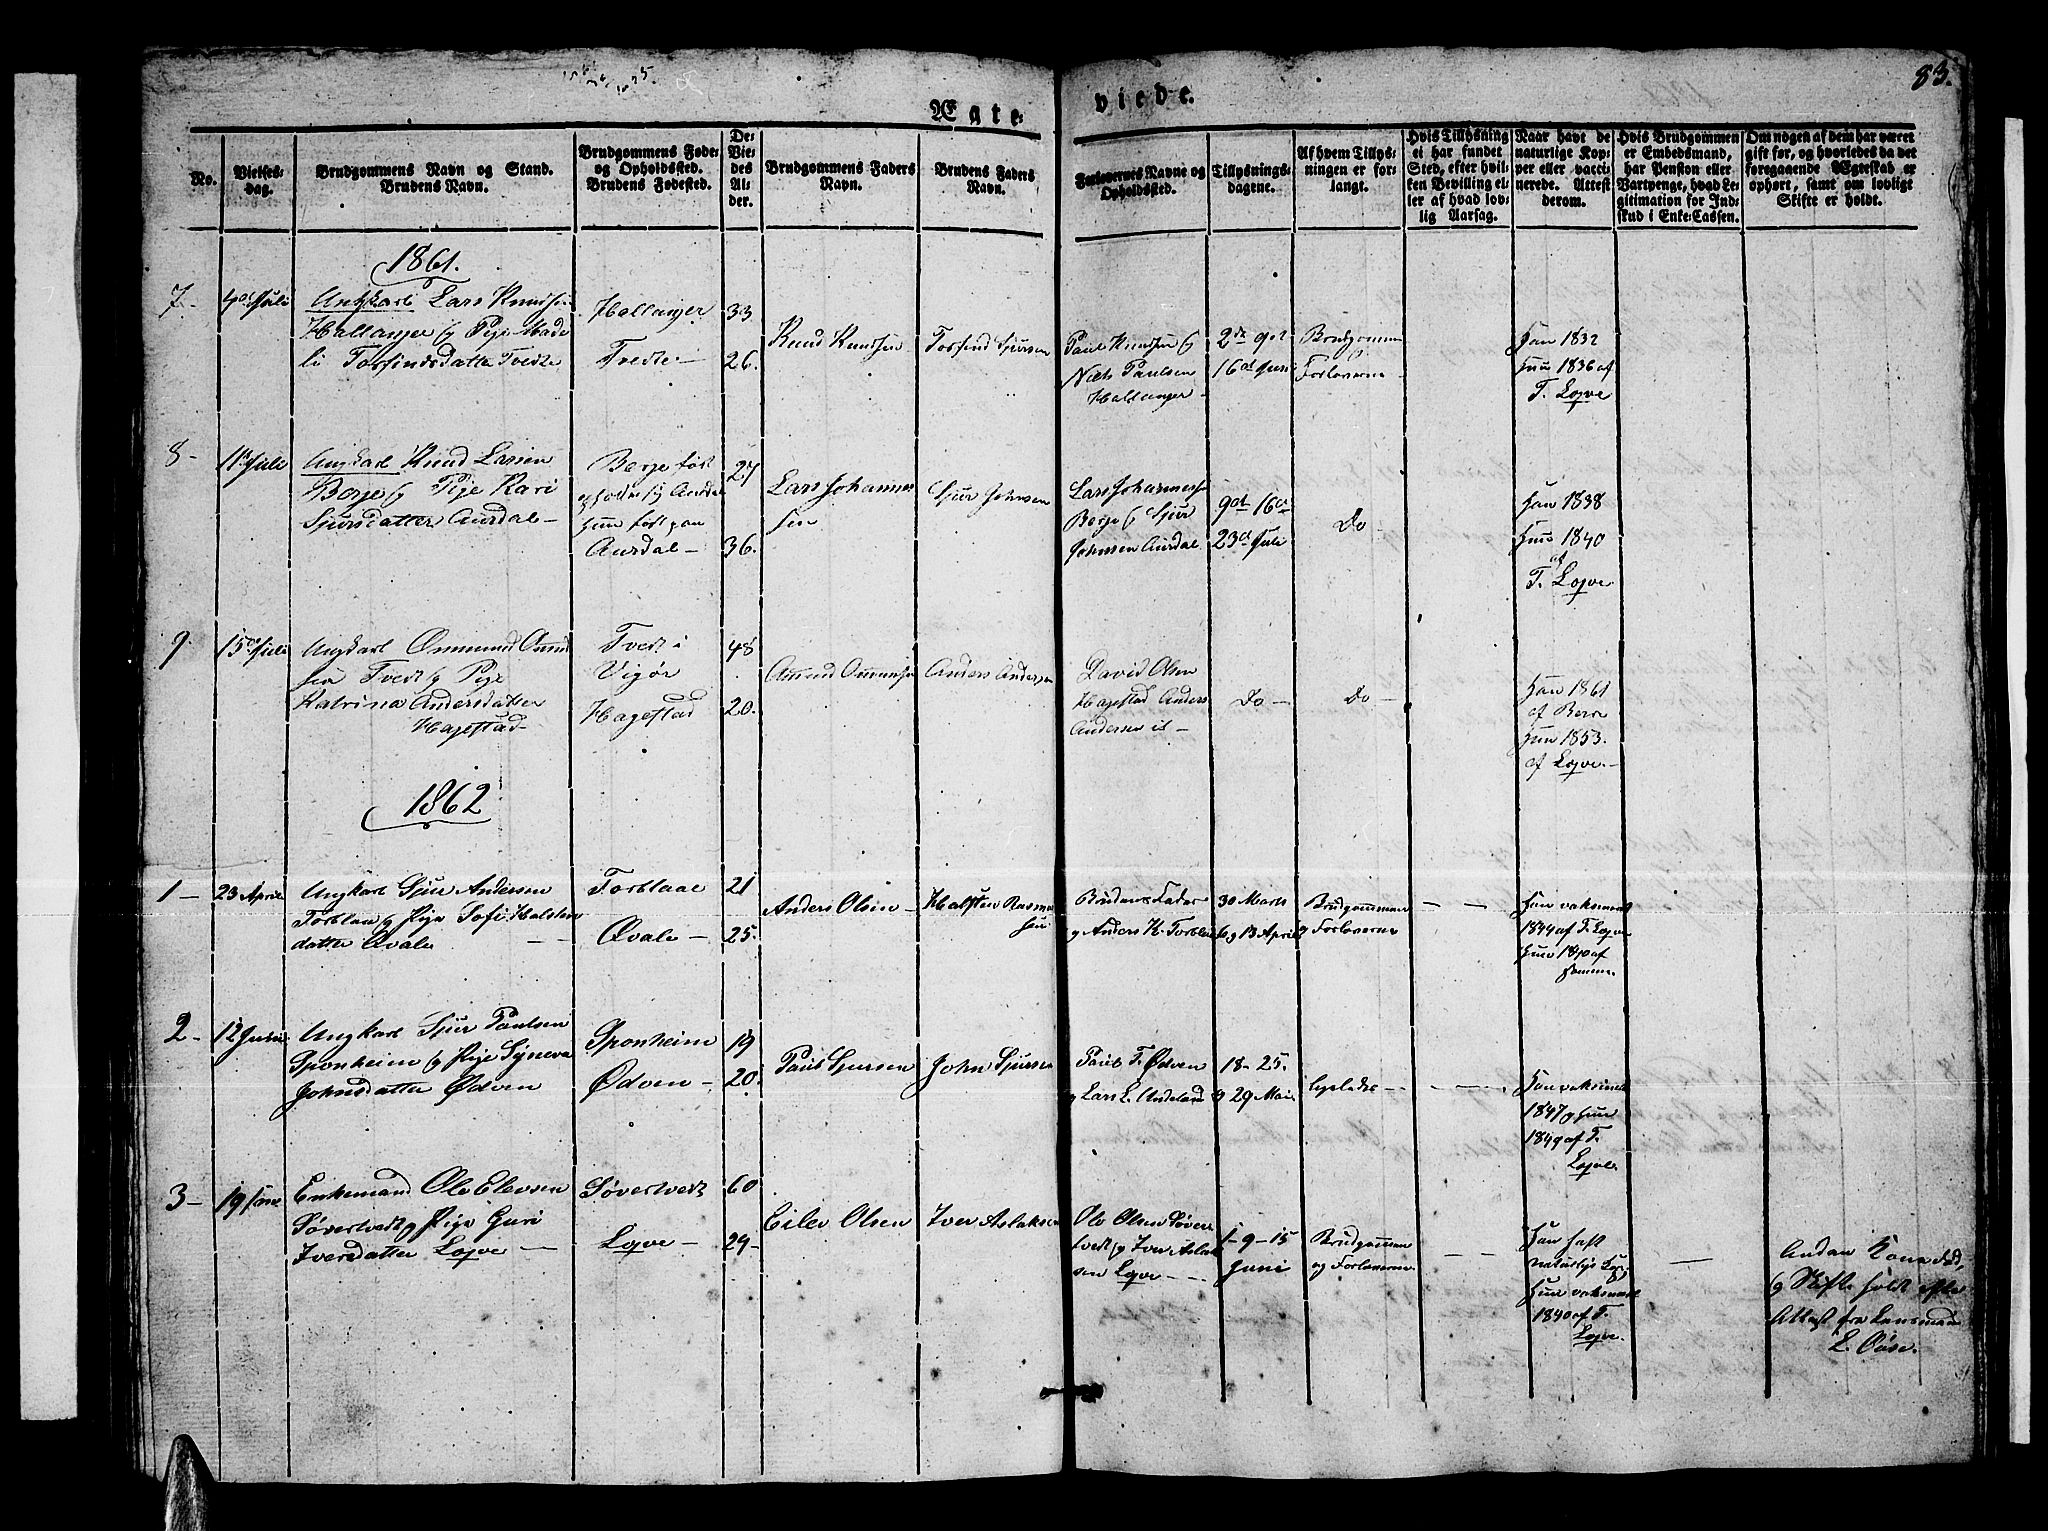 83.
Ægte-
viede.
No.
Vielses-
dag.
Brudgommens Navn og Stand.
Brudens Navn.
Brudgommens Føde-
og Opholdssted.
Brudens Fødested.
De
Vie-
des
Al-
der.
Brudgommens Faders
Navn.
Brudens Faders
Navn.
Forlovernes Navne og
Opholdssted.
Tillysnings-
dagene.
Af hvem Tillys-
ningen er for-
langt.
Hvis Tillysning
ei har fundet
Sted, efter hvil-
ken Bevilling el-
ler af hvad lov-
lig Aarsag.
Naar havt de
naturlige Kop-
per eller vacci-
nerede. Attest
derom.
Hvis Brudgommen
er Embedsmand,
har Pension eller
Vartpenge, hvad Le-
gitimation for Ind-
skud i Enke-Cassen.
Om nogen af dem har været
gift før, og hvorledes da det
foregaaende Ægteskab er
ophørt, samt om lovligt
Skifte er holdt.
1861.
7-
4de Juli
Ungkarl Lars Knudsen
Hallanger og Pige Made
li Torfindsdatter Tvedte
Hallanger
Tvedte
33.
26.
Knud Knudsen
Torfind Sjursen
Paul Knudsen og
Niels Paulsen
Hallanger
2de 9de
16de Juni
Brudgommen
Forloverne
Han 1832
Hun 1836 af
T. Lqve
8-
11te Juli
Ungkarl Knud Larsen
Berge og Pige Kari
Sjursdatter Aurdal
Berge født
og holder sig Aurdal
Hun født paa
Aurdal
27
36.
Lars Johannes
sen
Sjur Johnsen
Lars Johannessen
Berge og Sjur
Johnsen Aurdal
9de 16de
23de Juli
Do
Han 1838
Hun 1840
af
T. Lqve
9.
15de Juli
Ungkarl Ommund Omund
sen Tvedt og Pige
Katrina Andersdatter
Hagestad
Tvedt i
Vigør
Hagestad
48
20.
Anders Andersen
David Olsen
Hagestad Anders
Andersen it
Do
Do
Han 1861
af
Hun 1853.
af Lqve
1862
1-
23 April
Ungkarl Sjur Andersen
Torblaa og Pige Sofi Halsten
datter Øvale
Torblaae
Øvale
21
25.
Anders Olsen
Halsten Rasmus
sen
Brudens Fader
og Anders H. Torblaa
30 Marts
6 og 13 April
Brudgommen
og Forloverne
Han vaksineret
1844 af T. Lqve
Hun 1840 af
samme
2-
12 Juni
Ungkarl Sjur Paulsen
Sponheim og Pige Syneva
Johnsdatter Ødven
Sponheim
Ødven
19
20.
Paul Sjursen
John Sjursen
Paul T. Ødven
og Lars L. Andeland
18- 25.
og 29 Mai
ligeledes
Han vaksineret
1847 og hun
1849 af T.
Lqve
3-
19 Juni
Enkemand Ole Elevsen
Søvertvedt og Pige Guri
Iversdatter Lqve
Søvertvedt
Lqve
60
29-
Eilev Olsen
Iver Aslaksen
Ole Olsen Søver
tvedt og Iver Aslak
sen Lqve
1-9-15
Juni
Brudgommen
og Forloverne
Han haft
naturlige Kop
Hun vaksineret
1840 af T.
Lqve.
Anden Kone død,
og Skifte holdt efter
Attest fra Lensmand
L. Opse.